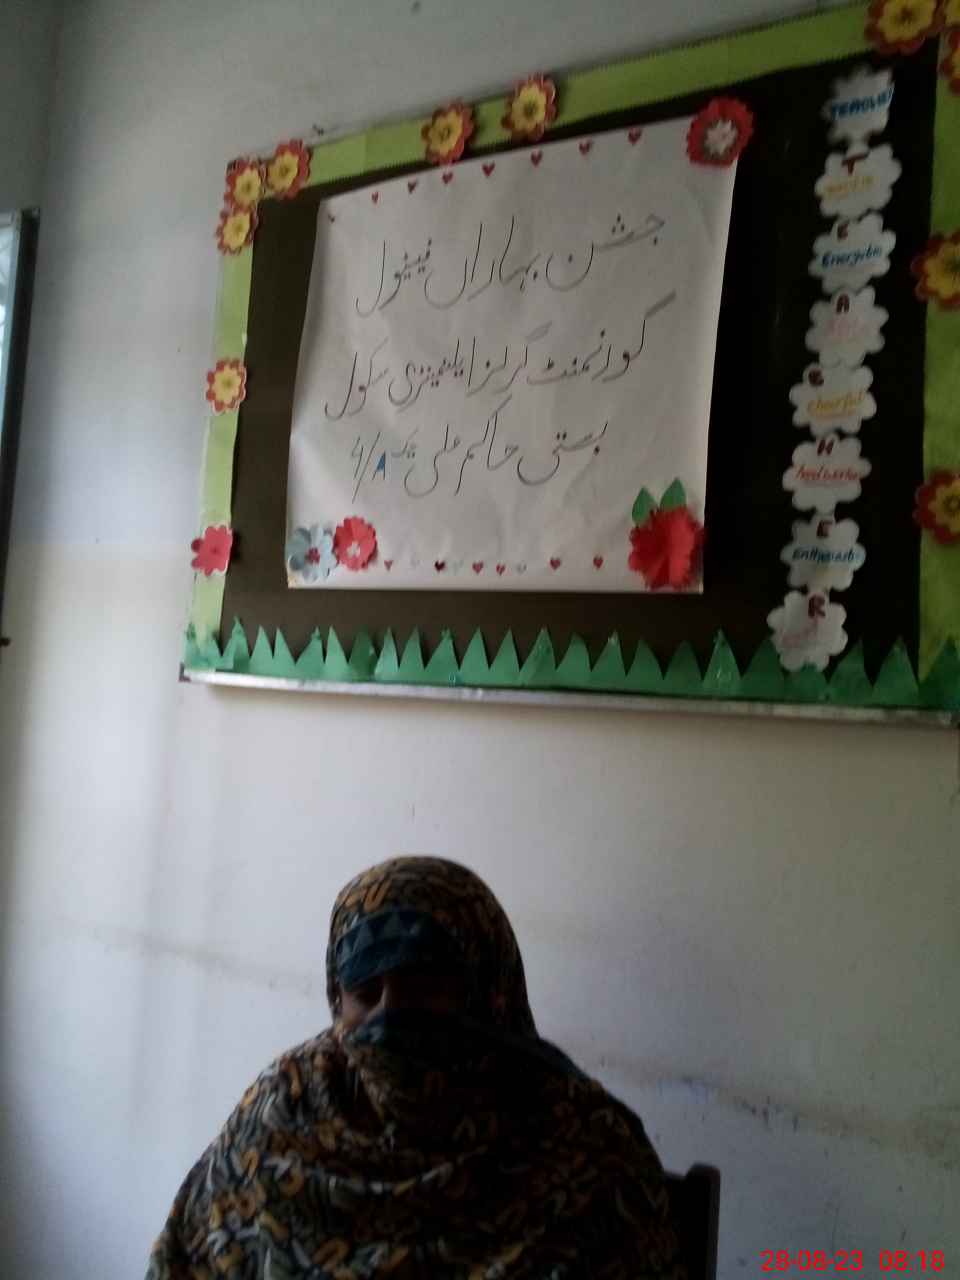 جشن بہاراں فیسٹیول
گورنمنٹ گرلز ایلیمنٹری سکول
بستی حاکم علی چک 4/A
TEACHER
T
E
Energetic
A
C
cheerful
H
hard worker
E
Enthusiastic
R
28-08-23 08:18